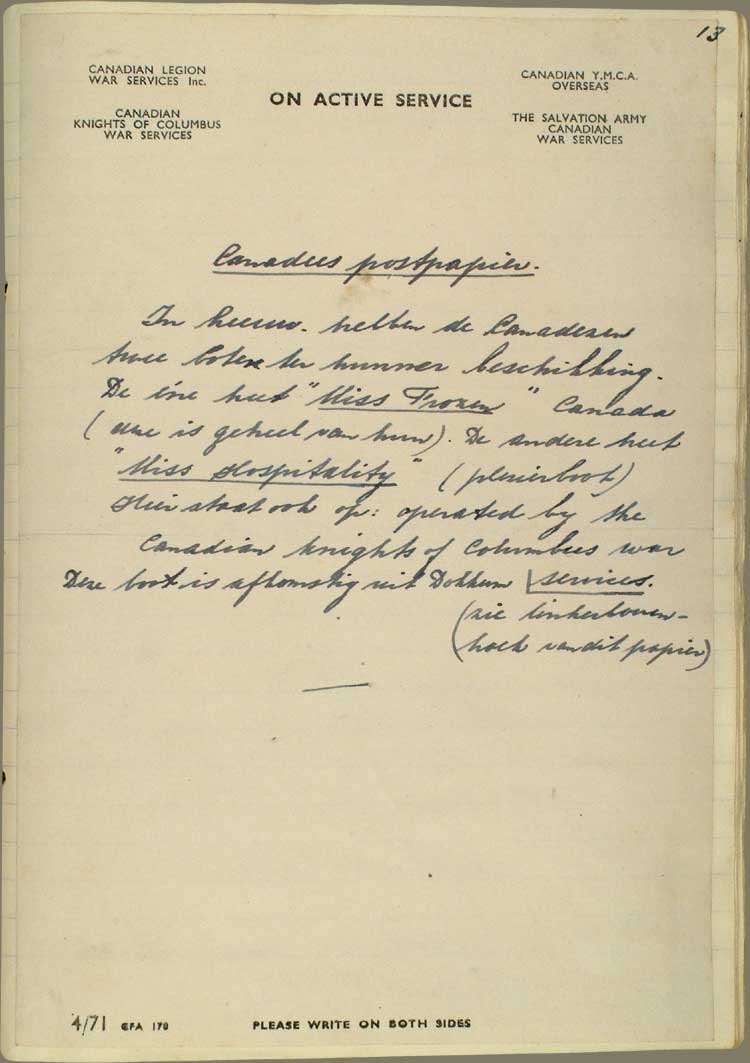 13
CANADIAN LEGION
WAR SERVICES Inc.
CANADIAN
KNIGHTS OF COLUMBUS
WAR SERVICES
ON ACTIVE SERVICE
CANADIAN Y.M.C.A.
OVERSEAS
THE SALVATION ARMY
CANADIAN
WAR SERVICES
Canadees postpapier.
In Leeuw. hebben de Canadezen
twee boten ter hunner beschikking.
De éne heet "Miss Frozen" Canada
(deze is geheel van hun). De andere heet
"Miss Hospitality" (plezierboot)
Hier staat ook op: operated by the
Canadian knights of Columbus war
services.
Deze boot is afkomstig uit Dokkum
(zie linkerboven-
hoek van dit papier)
4/71 CFA 170
PLEASE WRITE ON BOTH SIDES